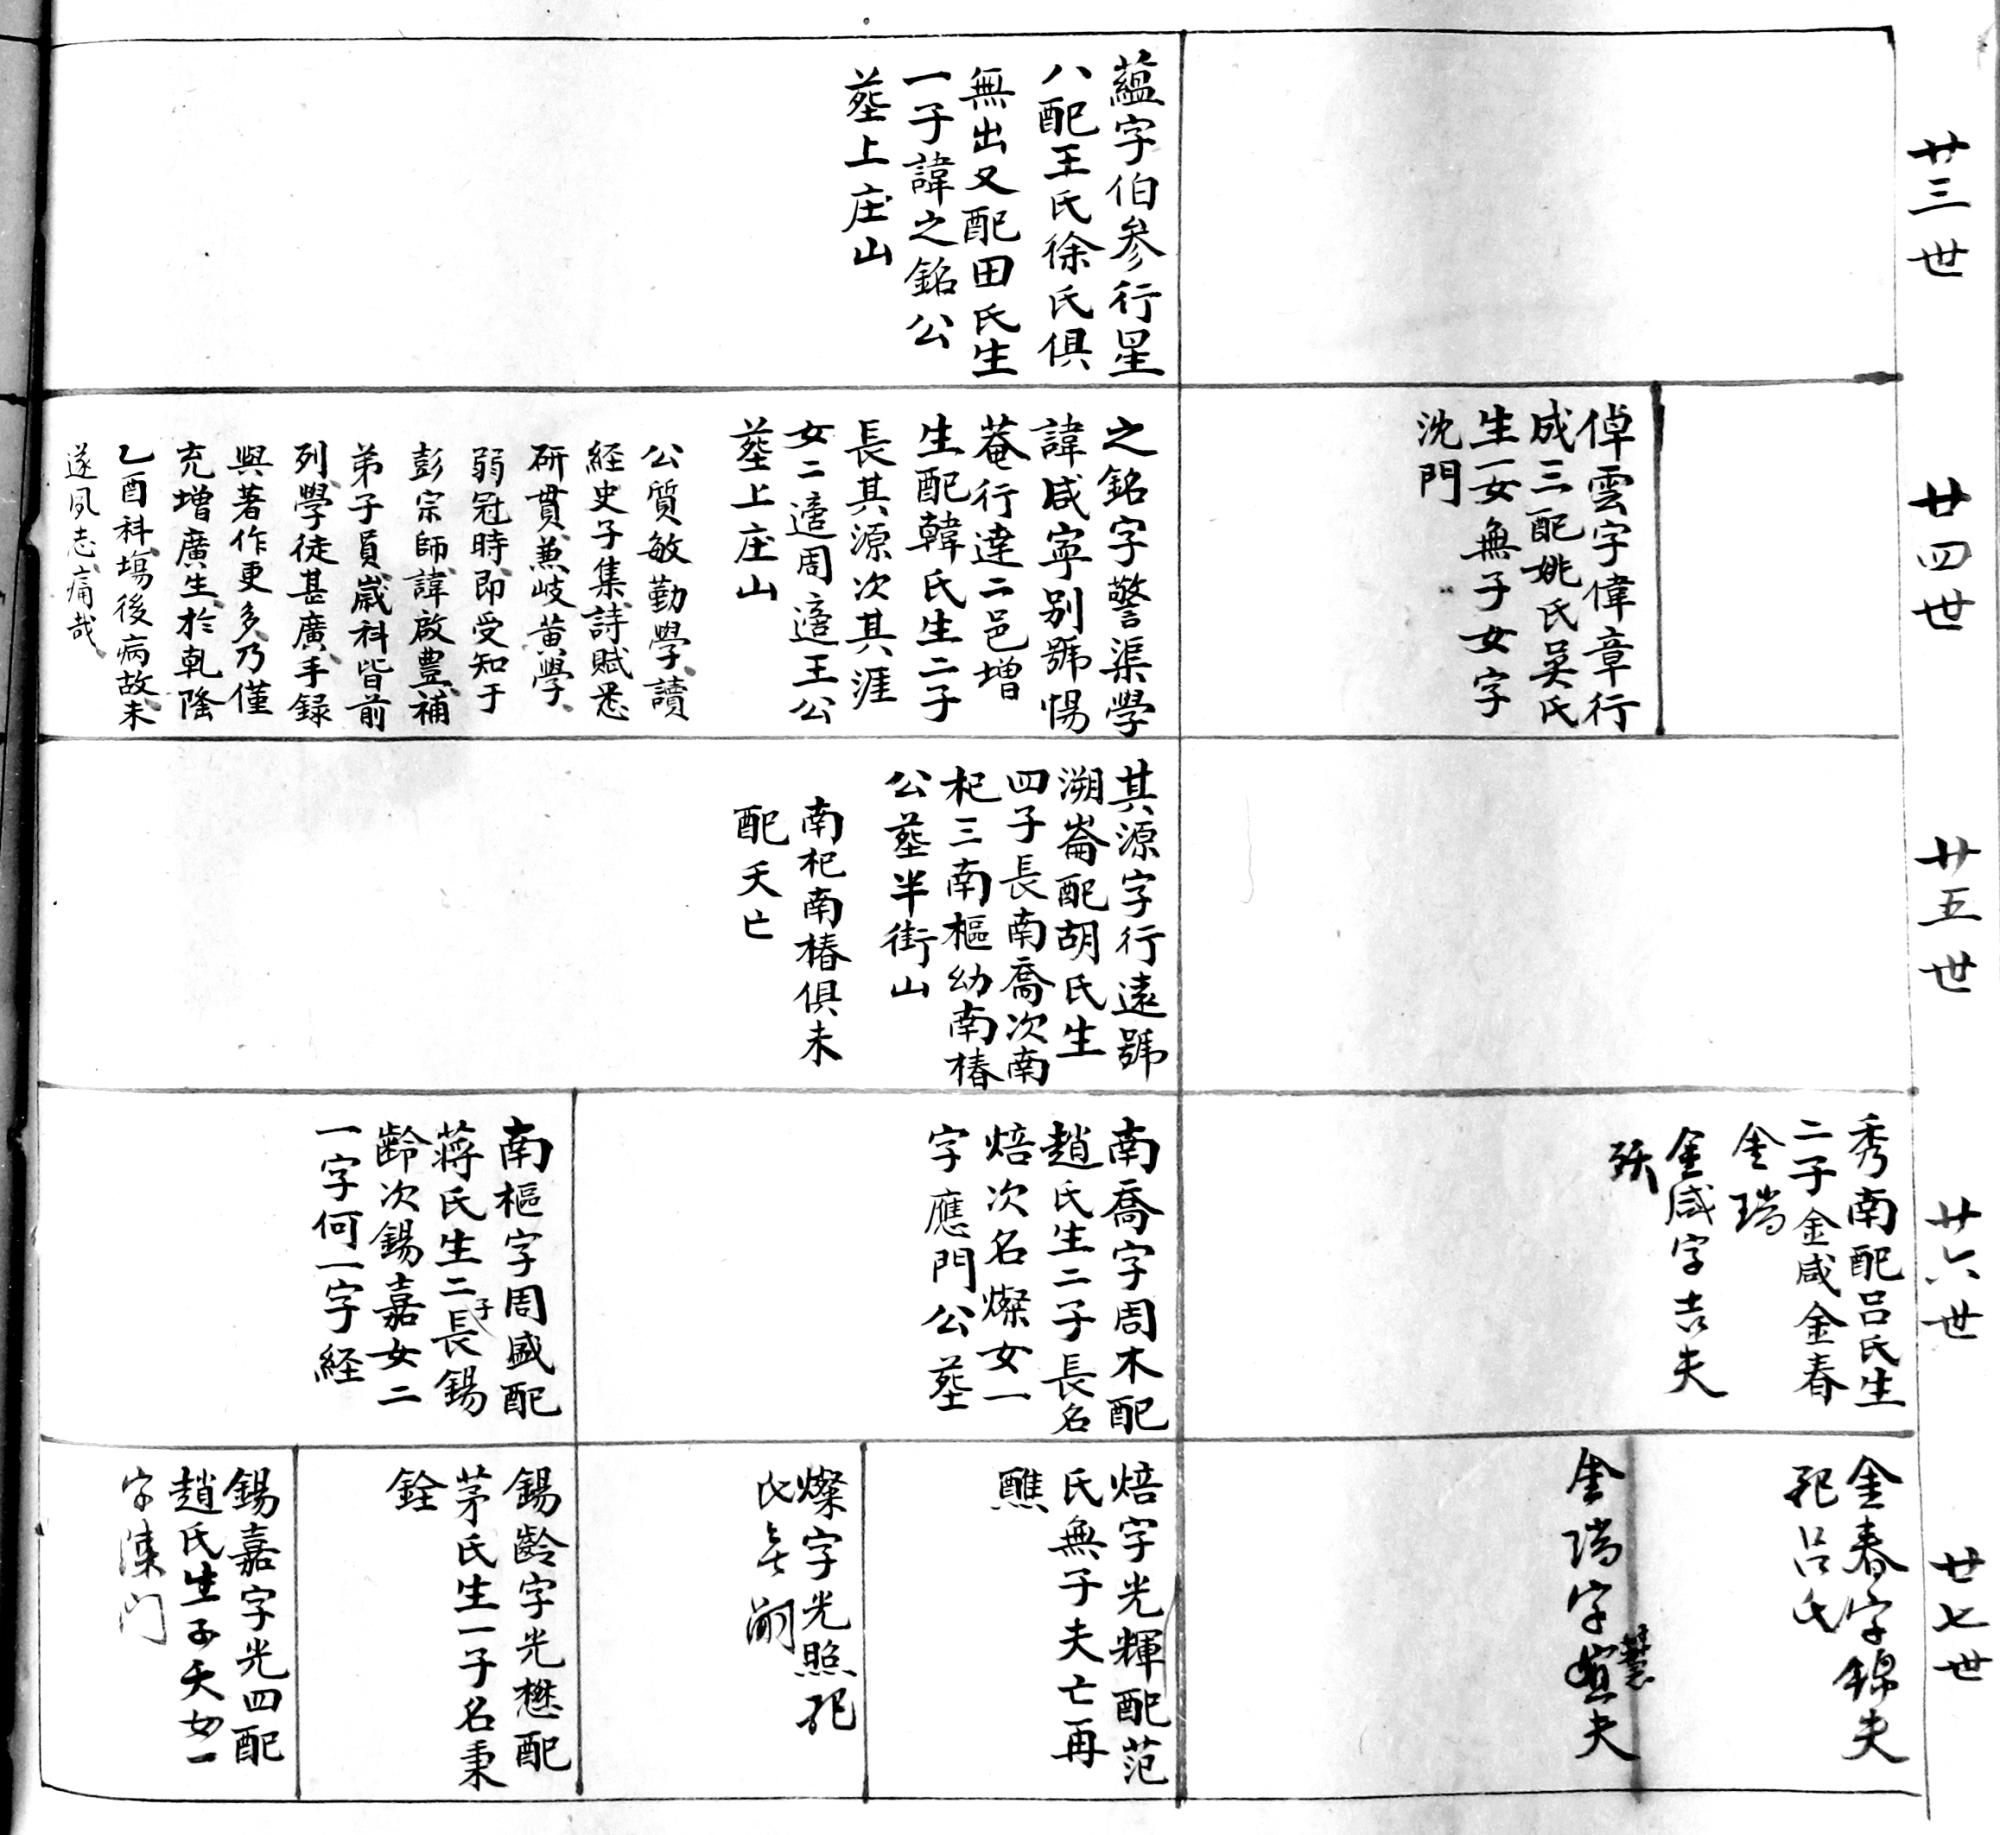 廿三世
蘊字伯參行星
八配王氏徐氏俱
無出又配田氏生
一子諱之銘公
塟上庄山
廿四世
倬雲字偉章行
成三配姚氏吳氏
生一女無子女字
沈門
之銘字警渠學
諱咸寧别號惕
菴行達二邑增
生配韓氏生二子
長其源次其涯
女二適周適王公
塟上庄山
公質敏勤學讀
経史子集詩賦悉
研貫兼岐黄學
弱冠時即受知于
彭宗師諱啟豊補
弟子員嵗科皆前
列學徒甚廣手録
與著作更多乃僅
充增廣生於乹隆
乙酉科塲後病故未
遂夙志痛哉
廿五世
其源字行遠號
溯崙配胡氏生
四子長南喬次南
杞三南樞幼南椿
公塟半街山
南杞南椿俱未
配夭亡
廿六世
秀南配吕氏生
二子金咸金春
金瑞
金咸字吉夫
殀
南喬字周木配
趙氏生二子長名
焙次名燦女一
字應門公塟
南樞字周盛配
蔣氏生二子長錫
齡次錫嘉女二
一字何一字経
廿七世
金春字錦夫
配吕氏
金瑞字蕙夫
焙字光輝配范
氏無子夫亡再
醮
燦字光照配
氏無嗣
錫齡字光懋配
茅氏生一子名秉
銓
錫嘉字光四配
趙氏生子夭女一
字陳门